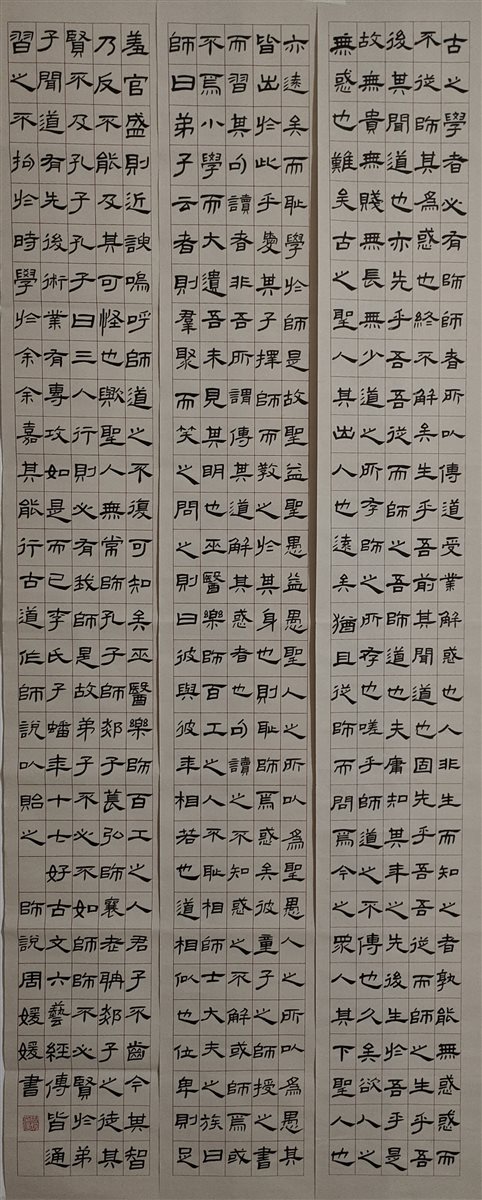 古之學者必有師師者所以傳道受業解惑也人非生而知之者孰能無惑惑而
不從師其為惑也終不解矣生乎吾前其聞道也固先乎吾吾從而師之生乎吾
後其聞道也亦先乎吾吾從而師之吾師道也夫庸知其年之先後生於吾乎是
故無貴無賤無長無少道之所存師之所存也嗟乎師道之不傳也久矣欲人之
無惑也難矣古之聖人其出人也遠矣猶且從師而問焉今之眾人其下聖人也
亦遠矣而恥學於師是故聖益聖愚益愚聖人之所以為聖愚人之所以為愚其
皆出於此乎愛其子擇師而教之於其身也則恥師焉惑矣彼童子之師授之書
而習其句讀者非吾所謂傳其道解其惑者也句讀之不知惑之不解或師焉或
不焉小學而大遺吾未見其明也巫醫樂師百工之人不恥相師士大夫之族曰
師曰弟子云者則羣聚而笑之問之則曰彼與彼年相若也道相似也位卑則足
羞官盛則近諛嗚呼師道之不復可知矣巫醫樂師百工之人君子不齒今其智
乃反不能及其可怪也歟聖人無常師孔子師郯子萇弘師襄老聃郯子之徒其
賢不及孔子孔子曰三人行則必有我師是故弟子不必不如師師不必賢於弟
子聞道有先後術業有專攻如是而已李氏子蟠年十七好古文六藝經傳皆通
習之不拘於時學於余余嘉其能行古道作師說以貽之 師說周媛媛書